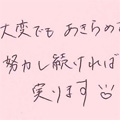 大変でも あきらめず
努力し続ければ
実ります